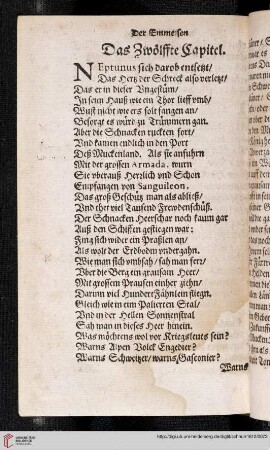 Der Emmeisen
Das Zwölffte Capitel.
NEptunus sich darob entsetzt/
Das Hertz der Schreck also verletzt/
Das er in dieser Vngestüm/
In seim Hauß wie ein Thor lieff vmb/
Wust nicht wie ers solt fangen an/
Besorgt es würd zu Trümmern gan.
Aber die Schnacken ruckten fort/
Vnd kamen endlich in den Port
Deß Muckenland. Als sie anfuhrn
Mit der grossen Armada, wurn
Sie vberauß Herzlich vnd Schon
Empfangen von Sanguileon.
Das groß Geschütz man als abließ/
Vnd thet viel Tausend Frewdenschüß.
Der Schnacken Heerschar noch kaum gar
Auß den Schiffen gestiegen war;
Fing sich wider ein Praßlen an/
Als wolt der Erdboden vndergahn.
Wie man sich vmbsah/ sah man fern/
Vber die Berg ein grausam Heer/
Mit grossem Prausen einher ziehn/
Darinn viel Hundert Fähnlein fliegn.
Gleich wie in ein Palierten Stal/
Vnd in der Hellen Sonnenstral
Sah man in dieses Heer hinein.
Was möchtens wol vor Kriegsleut sein?
Warns Alpen Volck Engedier?
Warns Schweitzer/ warns Gasconier?
Warns